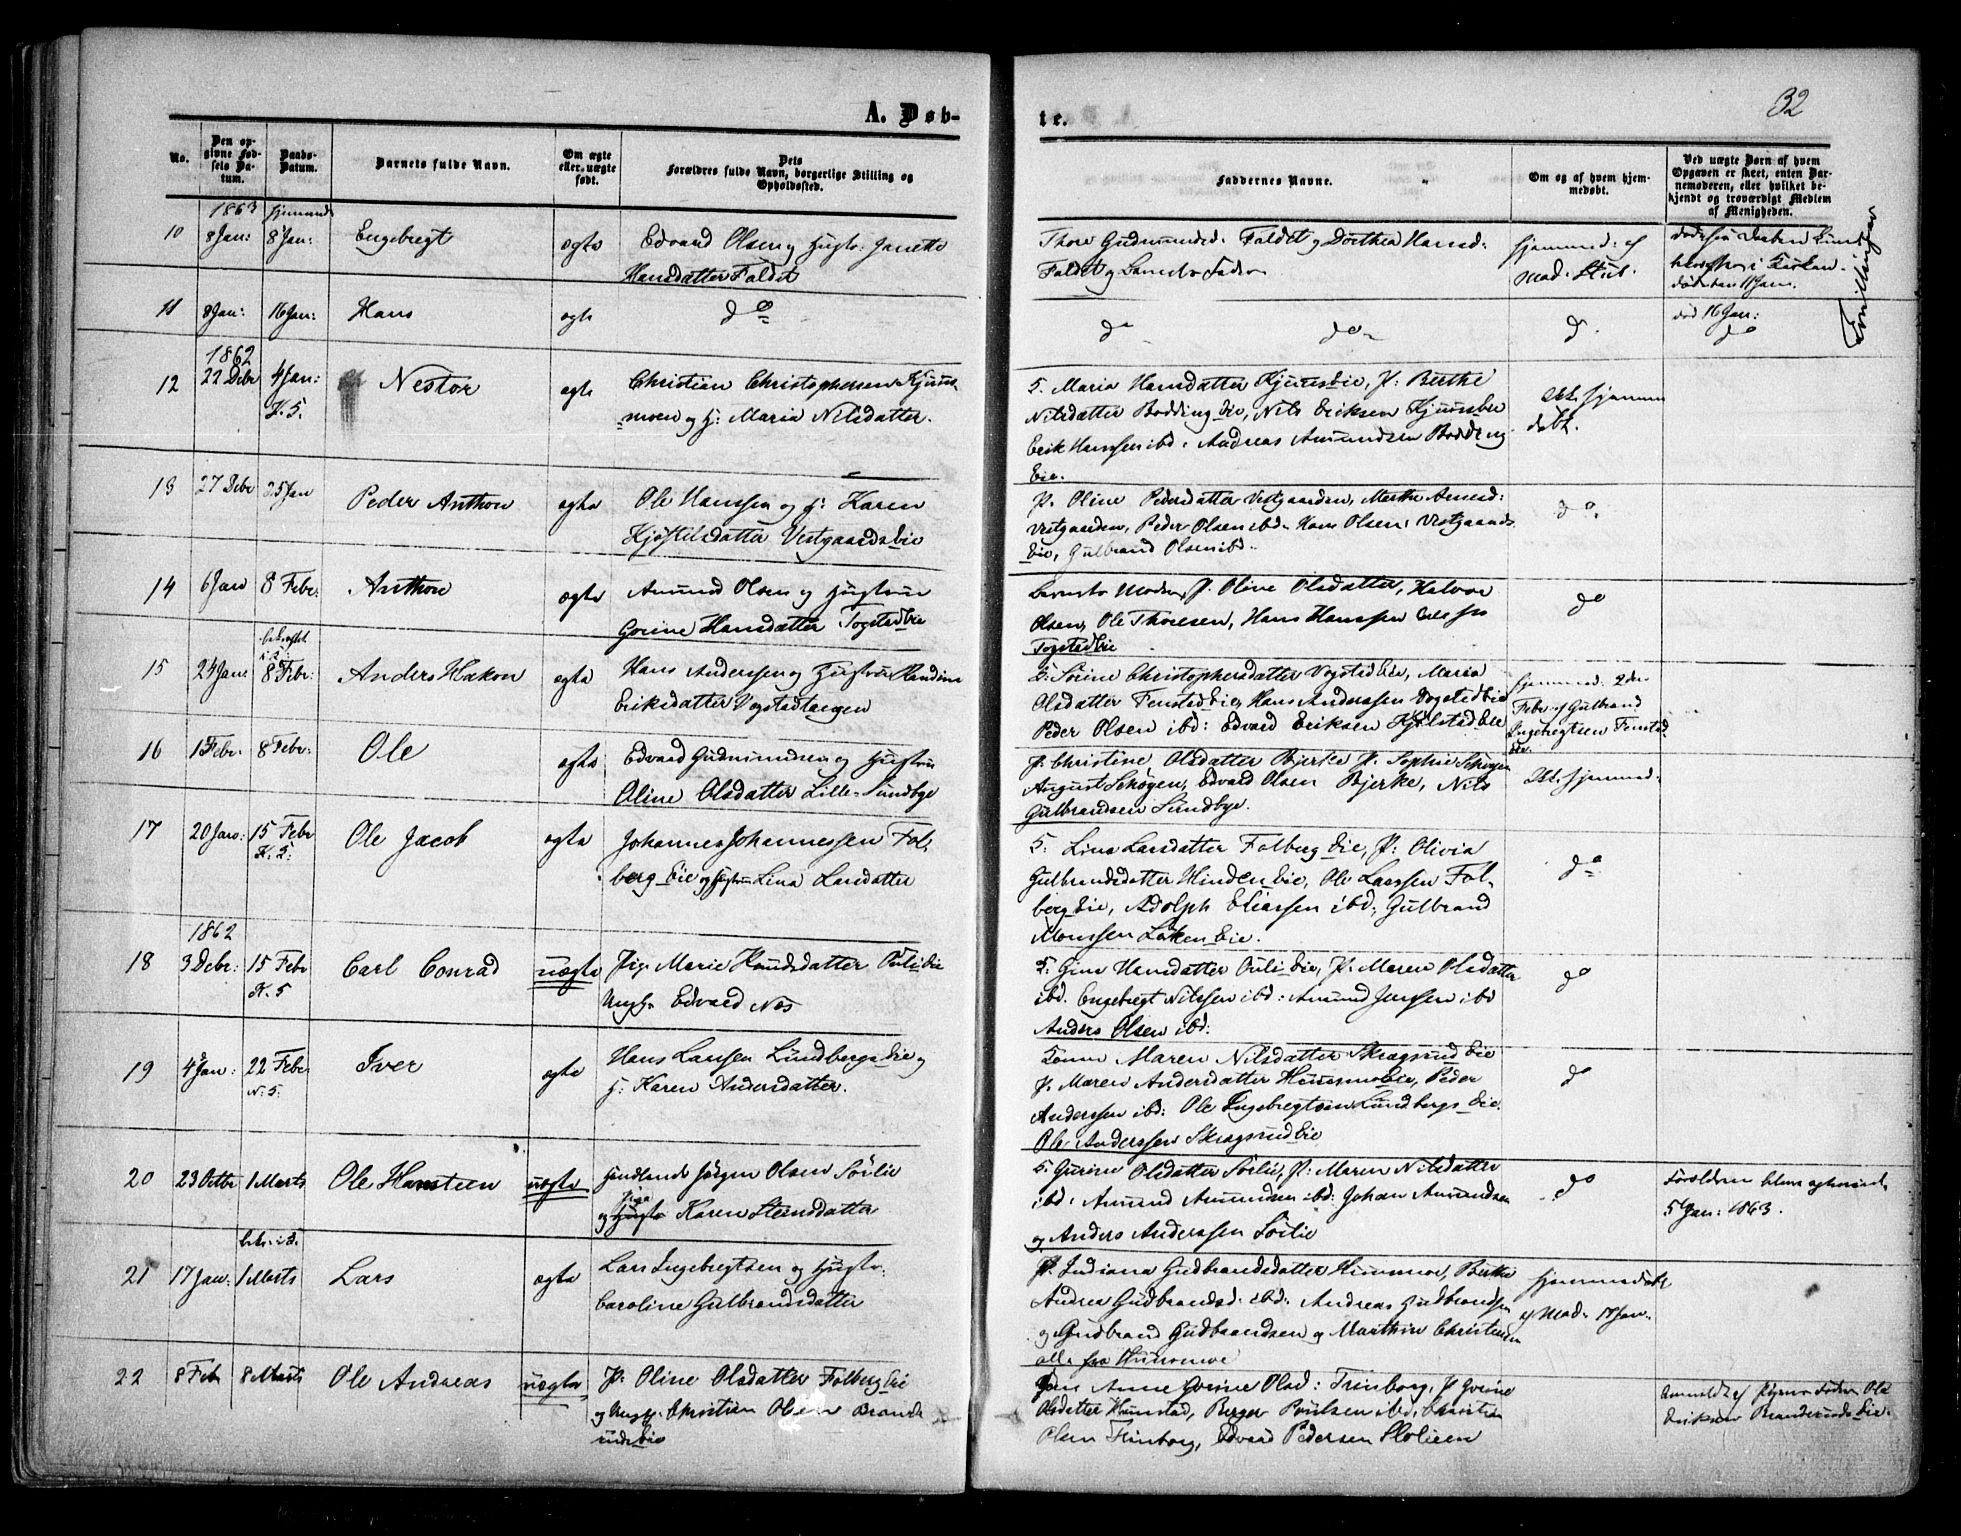 A. Døb-
te.
32
No.
Den op-
givne Fød-
sels Da-
tum.
Daabs-
Datum.
Barnets fulde Navn.
Om ægte
eller uægte
født.
Dets
Forældres fulde Navn, borgerlige Stilling og
Opholdssted.
Faddernes Navne.
Om og af hvem hjem-
medøbt.
Ved uægte Børn af hvem
Opgaven er skeet, enten Bar-
nemoderen, eller hvilket be-
kjendt og troværdigt Medlem
af Menigheden.
1863
10 8 Jan: 8 Jan: Engebregt ægte Edvard Olsen og Hustr. Janette
Hansdatter Faldet
Thore Gudmundsd. Faldet og Dorthea Hansd:
Faldet og Barnets Fader
hjemmed: af
Mad: Stub.
11 8 Jan: 16 Jan: Hans ægte do
do do do
død 16 Jan:
do
1862
12 22 Debr 4 Jan: Nestor ægte Christian Christophersen Kjuus-
K. S. moen og H: Maria Nilsdatter.
S. Maria Hansdatter Kjuusbeie, P: Berthe
Nilsdatter Bodding Eie, Nils Eriksen Kjuusbeie
Erik Hanssen ibd. Andreas Amundsen Bodding
Eie.
Att. hjemme
døbt.
13 27 Debr 25 Jan Peder Anthon ægte Ole Hanssen og H: Karen
Kjøstelsdatter Vestgaardseie
P. Oline Pedersdatter Vestgaarden, Marthe Amund:
Vestgaarden, Peder Olsen ibd. Hans Olsen Vestgaards
Eie, Gulbrand Olsen ibd.
do
14 6 Jan 8 Febr: Anthon ægte Amund Olsen og Hustrue
Gorine Hansdatter Togstedeie
Barnets Moder, P. Oline Olsdatter, Halvor
Olsen, Ole Thoresen, Hans Hanssen alle fra
Togstedeie
do
15 24 Jan: 8 Febr: Anders Hakon ægte Hans Anderssen og Hustrue Randine
Eriksdatter Vogstadtangen
S: Sørine Christophersdatter Vogstedeie, Maria
Olsdatter Fenstedeie, Hans Anderssen Vogstedeie
Peder Olsen ibd: Edvard Eriksen Kjølstedeie
hjemmed: 2den
Febr af Gulbrand
Ingebregtsen Fenstad
Eie.
16 1 Febr: 8 Febr: Ole ægte Edvard Gudmundsen og Hustrue
Oline Olsdatter Lille-Sundbye
P: Christine Olsdatter Bjerke P. Sophie Schøgen
August Schøgen, Edvard Olsen Bjerke, Nils
Gulbrandsen Sundbye.
Att. hjemmed:
17 20 Jan: 15 Febr Ole Jacob ægte Johannes Johannessen Fol-
K. S: berg Eie og Hustrue Lina Larsdatter
S: Lina Larsdatter Folberg Eie, P: Olivia
Gulbrandsdatter Hinden Eie, Ole Larssen Fol-
berg Eie, Adolph Eliassen ibd: Gulbrand
Monssen Løken Eie.
do
1862
18 3 Debr: 15 Febr Carl Conrad uægte Pig. Marie Knudsdatter Ouli Eie
K. S Ungk. Edvard Næs
S: Gina Hansdatter Ouli Eie, P: Maren Olsdatter
ibd. Engebregt Nilssen ibd: Amund Jenssen ibd
Anders Olsen ibd:
do
19 4 Jan: 22 Febr Iver ægte Hans Larsen Lundbergs Eie og
N. S: H: Karen Andersdatter.
Konen Maren Nilsdatter Skragsrud Eie
P. Maren Andersdatter Huusmoeie, Peder
Anderssen ibd: Ole Ingebregtsen Lundbergs Eie.
Ole Anderssen Skragsrud Eie
do
20 23 Octbr 1 Marts Ole Hansteen uægte Jørgen Olsen Sørlie
Pige
og Hustr Karen Steensdatter
S. Gurine Olsdatter Sørlie, P: Maren Nilsdatter
ibd. Amund Amundsen ibd: Johan Amundsen
og Anders Anderssen Sørlie
do
Forældrene bleve
5 Jan: 1863.
21 17 Jan: 1 Marts Lars ægte Lars Ingebregtsen og Hustr.
Caroline Gulbrandsdatter
P. Indiana Gudbrandsdatter Huusmoe, Berthe
Andrea Gudbrandsd. ibd. Andreas Gudbrandsen
og Gudbrand Gudbrandsen og Marthin Christensen
alle fra Huusmoe
hjemmedøbt
af Mad. 17 Jan.
22 8 Feb 8 Marts Ole Andreas uægte P: Oline Olsdatter Folberg Eie
og Ungk: Christian Olsen Brande
rudseie
Anne Gorine Olsd: Trinborg, P Gorine
Olsdatter Hunstad, Berger Poulsen ibd, Christian
Olsen Trinborg, Edvard Pedersen Slolieen
Anmeldt af Pigens Fader Ole
Eriksen Branderuds Eie.